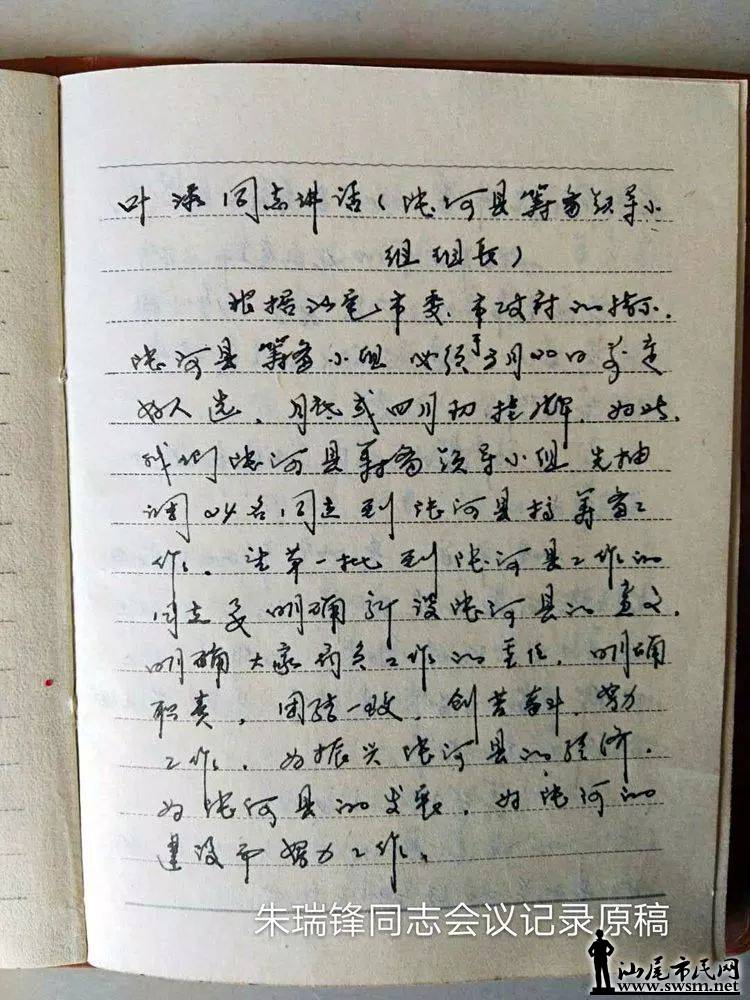 叶添同志讲话(陆河县筹备领导小
组组长)
根据汕尾市委、市政府的指示,
陆河县筹备小组必须于3月20日前定
好人选,月底或四月初挂牌,为此,
我们陆河县筹备领导小组先抽
调24名同志到陆河县搞筹备工
作。请第一批到陆河县工作的
同志要明确新设陆河县的意义,
明确大家肩负工作的重任,明确
职责,团结一致,创苦奋斗,努力
工作,为振兴陆河县的经济,
为陆河县的发展,为陆河的
建设而努力工作。
朱瑞锋同志会议记录原稿
汕尾市民网
www.swsm.net